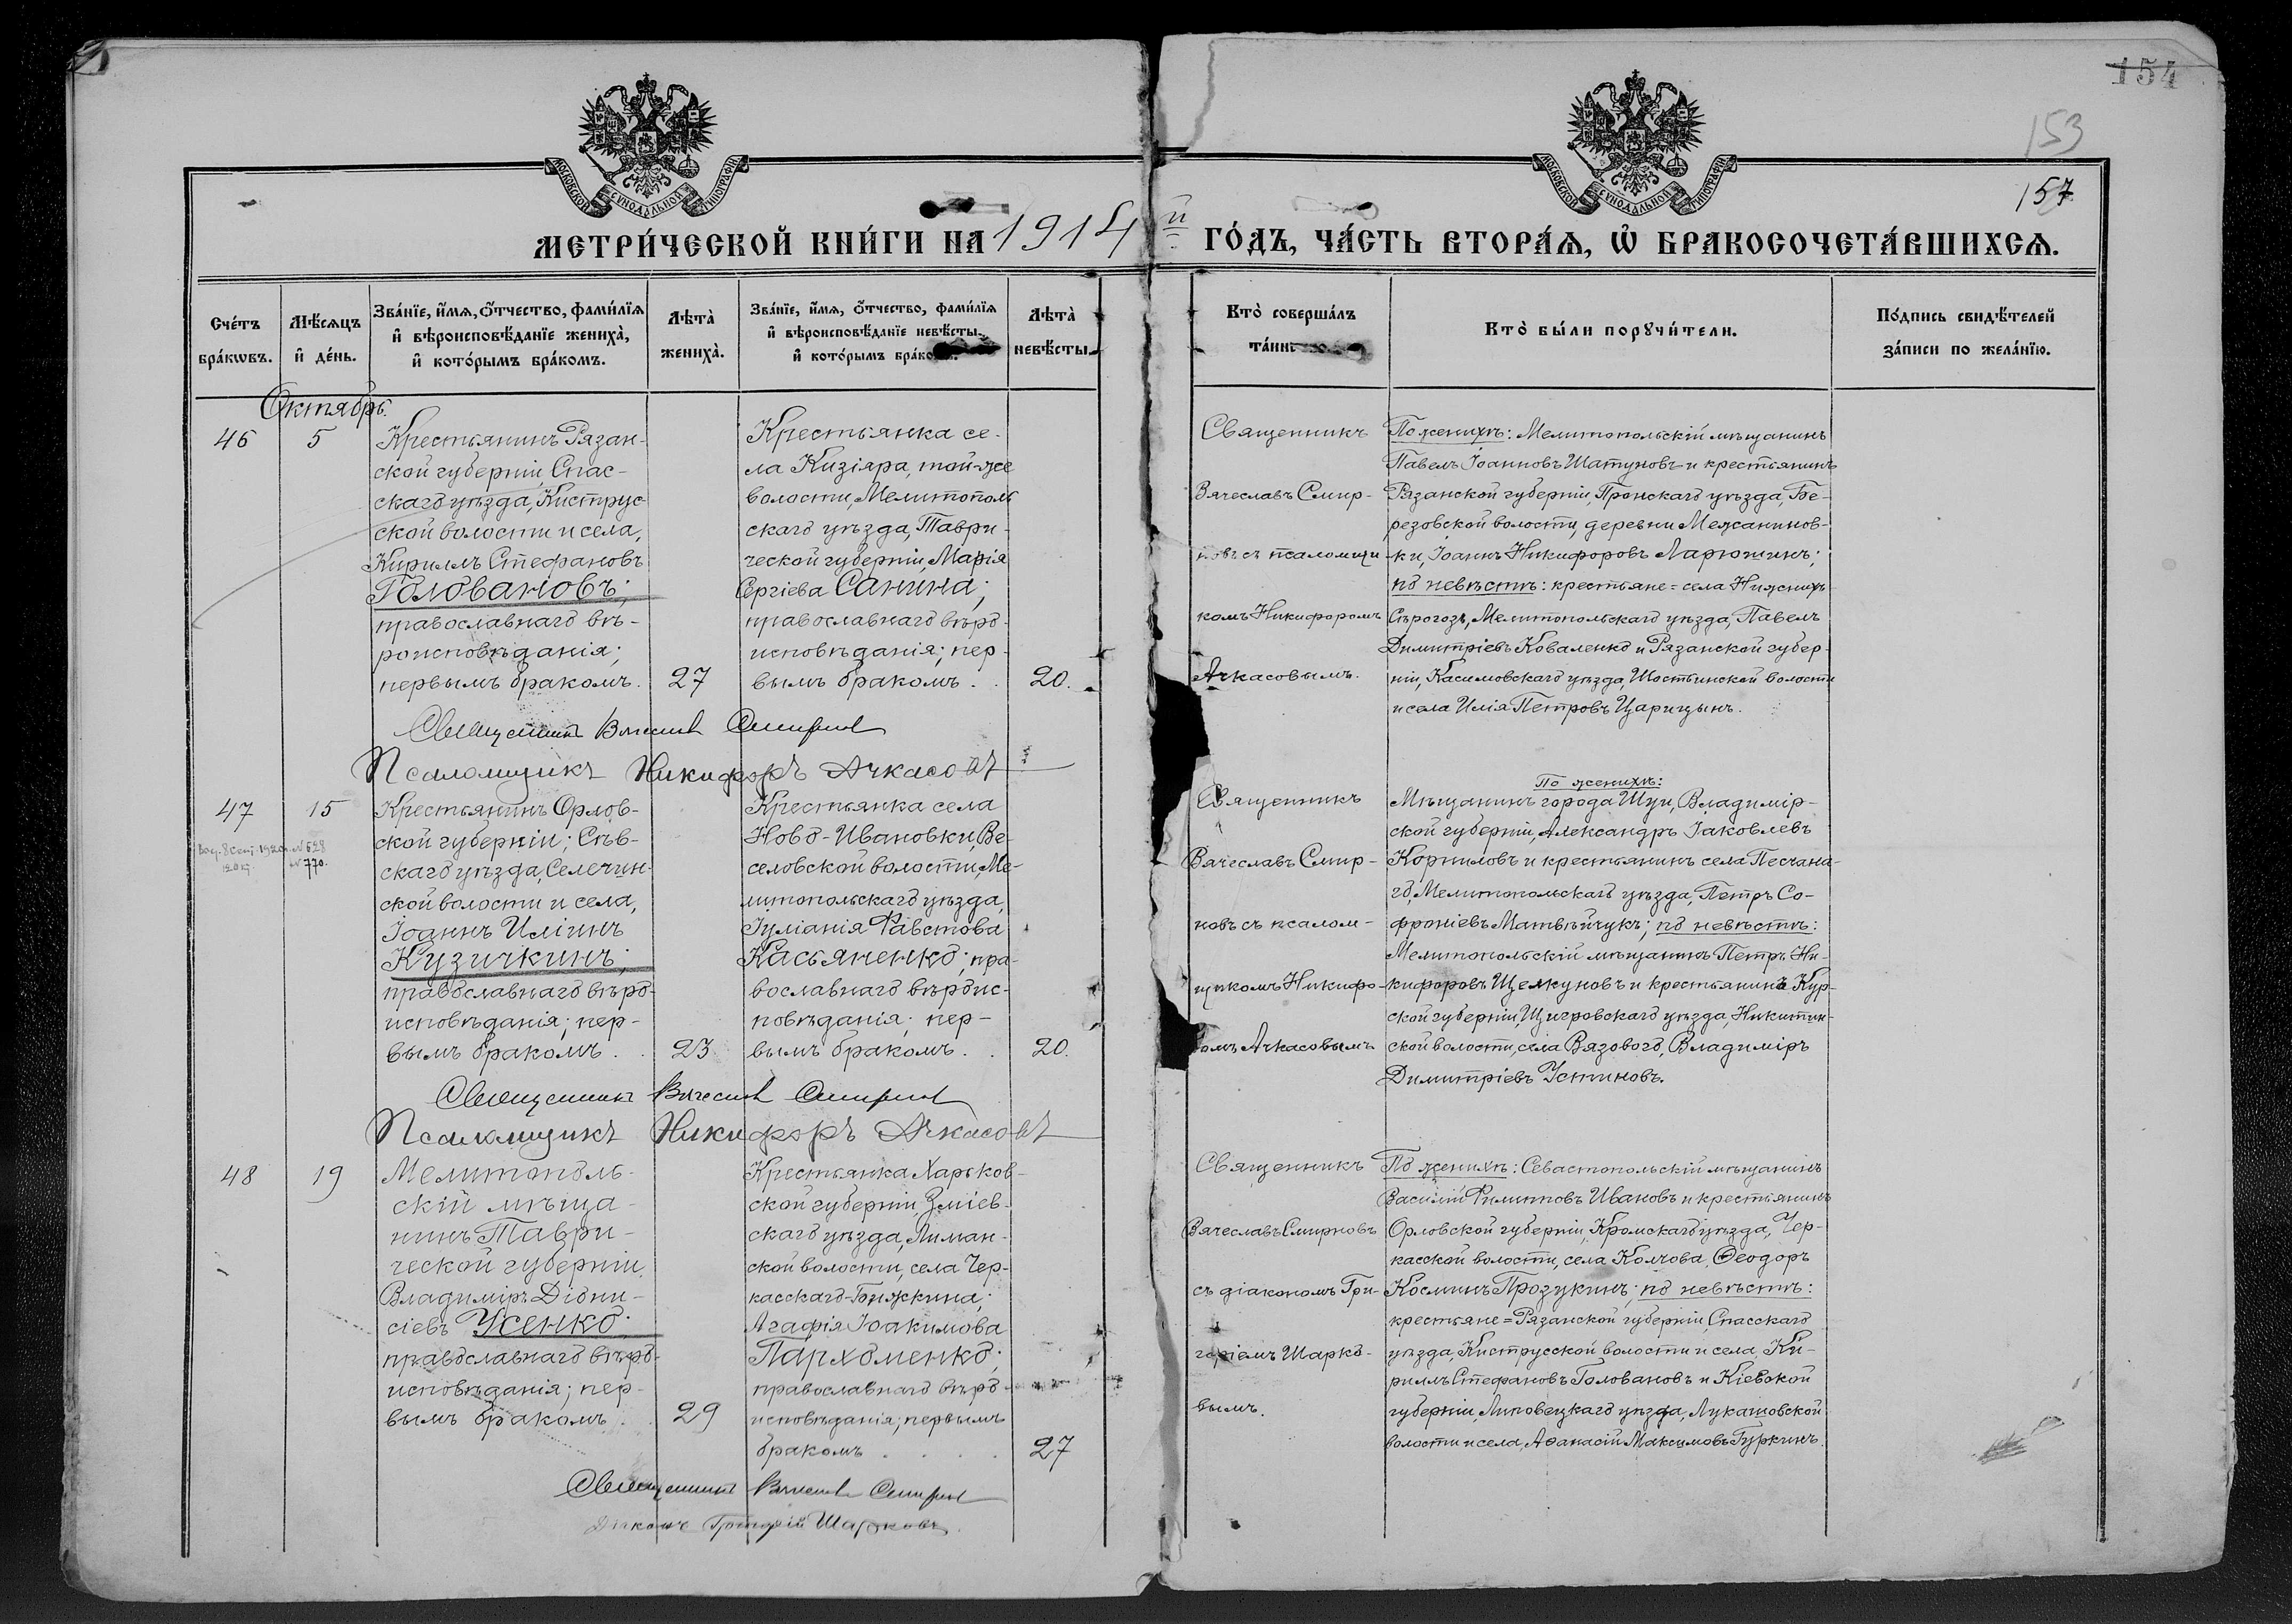 154
153
157
МОСКОВСКОЙ СѴНОДАЛЬНОЙ ТИПОГРАФІИ
МОСКОВСКОЙ СѴНОДАЛЬНОЙ ТИПОГРАФІИ
МЕТРИ́ЧЕСКОЙ КНИ́ГИ НА 1914 й ГО́ДЪ, ЧА́СТЬ ВТОРА́Я, Ѽ БРАКОСОЧЕТА́ВШИХСЯ.
Сче́тъ
бра́кѡвъ.
Мѣ́сяцъ
и҆ де́нь.
Зва́нїе, и҆́мя, ѻ҆́тчество, фами́лїя
и҆ вѣроисповѣ́данїе жениха̀,
и҆ кото́рымъ бра́комъ.
Лѣта̀
жениха̀.
Зва́нїе, и҆́мя, ѻ҆́тчество, фами́лїя
и҆ вѣроисповѣ́данїе невѣ́сты,
и҆ кото́рымъ бра́комъ.
Лѣта̀
невѣ́сты.
Кто̀ соверша́лъ
Кто̀ бы́ли порꙋчи́тели.
По́дпись свидѣ́телей
за́писи по жела́нїю.
Октябрь.
46
5
Крестьянинъ Рязан-
ской губерніи, Спас-
скаго уѣзда, Киструс-
ской волости и села,
Кириллъ Стефановъ
Головановъ;
православнаго вѣ-
роисповѣданія;
первымъ бракомъ.
27
Крестьянка се-
ла Кизіяра, той-же
волости, Мелитополь
скаго уѣзда, Таври-
ческой губерніи, Марія
Сергіева Санина;
православнаго вѣро-
исповѣданія; пер-
вымъ бракомъ . .
20.
Священникъ
Вячеславъ Смир-
новъ съ псаломщи-
комъ Никифоромъ
Ачкасовымъ.
По женихѣ: Мелитопольскій мѣщанинъ
Павелъ Іоанновъ Шатуновъ и крестьянинъ
Рязанской губерніи, Пронскаго уѣзда, Бе-
резовской волости, деревни Межаниновки
ки, Іоаннъ Никифоровъ Ларюшинъ;
по невѣстѣ: крестьяне = села Нижнихъ-
Сѣрогозъ, Мелитопольскаго уѣзда, Павелъ
Димитріевъ Коваленко и Рязанской губер-
ніи, Касимовскаго уѣзда, Шостьинской волости
и села Илія Петровъ Царицынъ.
Священникъ Вячеславъ Смирновъ
Псаломщикъ Никифоръ Ачкасовъ
47
15
Крестьянинъ Орлов-
ской губерніи, Сѣв-
скаго уѣзда, Селечин-
ской волости и села,
Іоаннъ Иліинъ
Кузичкинъ;
православнаго вѣро-
исповѣданія; пер-
вымъ бракомъ . .
23
Крестьянка села
Ново-Ивановки, Ве-
селовской волости, Ме-
литопольскаго уѣзда,
Іуліанія Фавстова
Касьяненко; пра-
вославнаго вѣроис-
повѣданія; пер-
вымъ бракомъ . .
20.
Священникъ
Вячеславъ Смир-
новъ съ псалом-
щикомъ Никифо-
ромъ Ачкасовымъ
По женихѣ:
Мѣщанинъ города Шуи, Владимір-
ской губерніи, Александръ Іаковлевъ
Корниловъ и крестьянинъ села Песчана-
го, Мелитопольскаго уѣзда, Петръ Со-
фроніевъ Матвѣйчукъ; по невѣстѣ:
Мелитопольскій мѣщанинъ Петръ Ни-
кифоровъ Щелкуновъ и крестьянинъ Кур-
ской губерніи, Щигровскаго уѣзда, Никитин-
ской волости, села Вязового, Владиміръ
Димитріевъ Устиновъ.
Священникъ Вячеславъ Смирновъ
Псаломщикъ Никифоръ Ачкасовъ
48
19
Мелитополь-
скій мѣща-
нинъ Таври-
ческой губерніи,
Владиміръ Діони-
сіевъ Усенко;
православнаго вѣро-
исповѣданія; пер-
вымъ бракомъ . .
29
Крестьянка Харьков-
ской губерніи, Зміев-
скаго уѣзда, Лиман-
ской волости, села Чер-
касскаго-Бишкина;
Агафія Іоакимова
Пархоменко;
православнаго вѣро-
исповѣданія; первымъ
бракомъ . . . .
27
Священникъ
Вячеславъ Смирновъ
съ діакономъ Гри-
горіемъ Шарко-
вымъ.
По женихѣ: Севастопольскій мѣщанинъ
Василій Филипповъ Ивановъ и крестьянинъ
Орловской губерніи, Кромскаго уѣзда, Чер-
касской волости, села Колчова, Ѳеодоръ
Косминъ Прозукинъ; по невѣстѣ:
крестьяне = Рязанской губерніи, Спасскаго
уѣзда, Киструсской волости и села, Ки-
риллъ Стефановъ Головановъ и Кіевской
губерніи, Липовецкаго уѣзда, Лукашовской
волости и села, Аѳанасій Максимовъ Гуркинъ.
Священникъ Вячеславъ Смирновъ
Діаконъ Григорій Шарковъ.